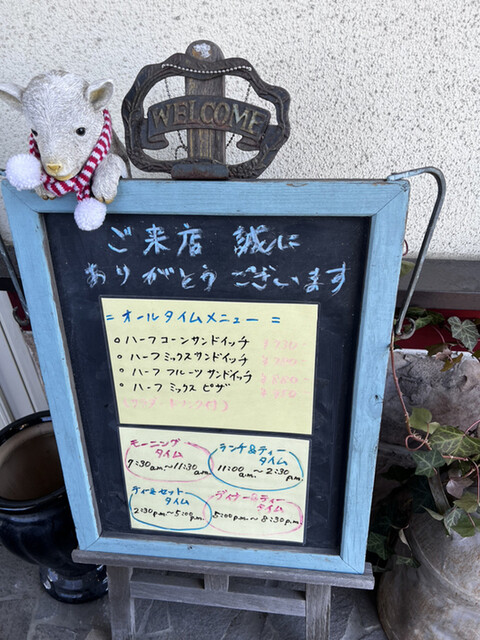 WELCOME
ご来店 誠に
ありがとうございます
= オールタイムメニュー =
。ハーフコーンサンドイッチ
。ハーフミックスサンドイッチ
。ハーフ フルーツ サンドイッチ
。ハーフ ミックス ピザ
モーニング
タイム
7:30a.m~11:30
a.m.
ランチ&ティー
タイム
11:00
a.m. ~ 2:30
p.m.
ティーセット
タイム
2:30p.m.~5:00p.m.
ディナー&ティー
タイム
5:00p.m.~8:30p.m.